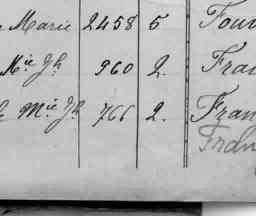 Marie 2458 5 Fou
Mie Jh 960 2. Fran
Mie Jh 766 2. Fran
Fran